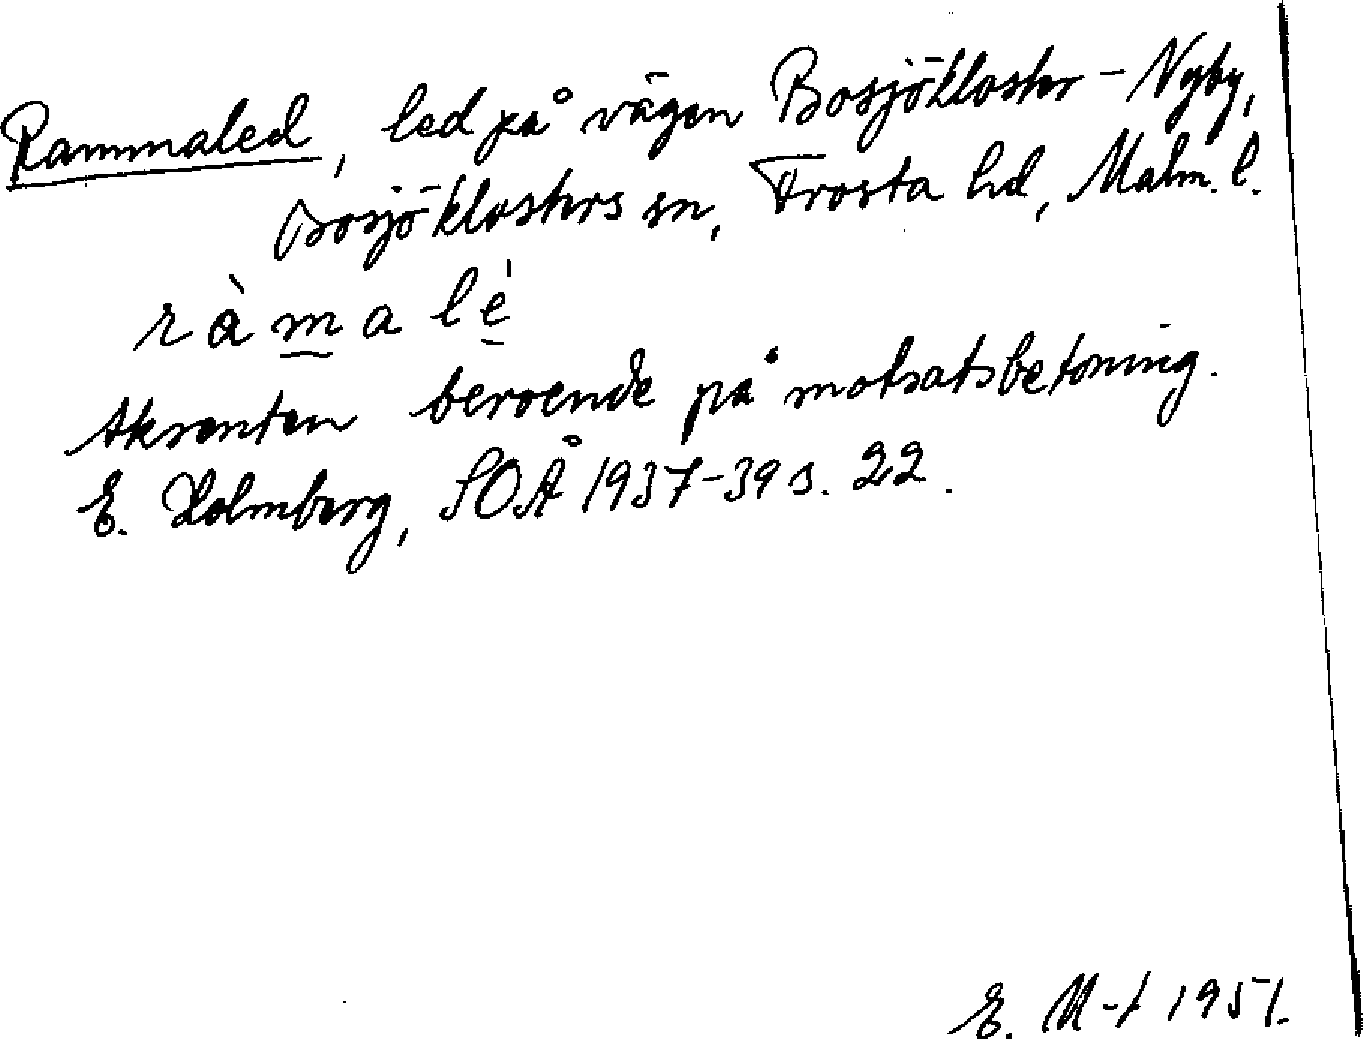 Rammaled, led på vägen Bosjökloster - Nyby,
Bosjöklosters sn, Frosta hd, Malm. l.
ràmalé
Akcenten beroende på motsatsbetoning.
E. Holmberg, SOÅ 1937-39 s. 22.
E. M-t 1951.